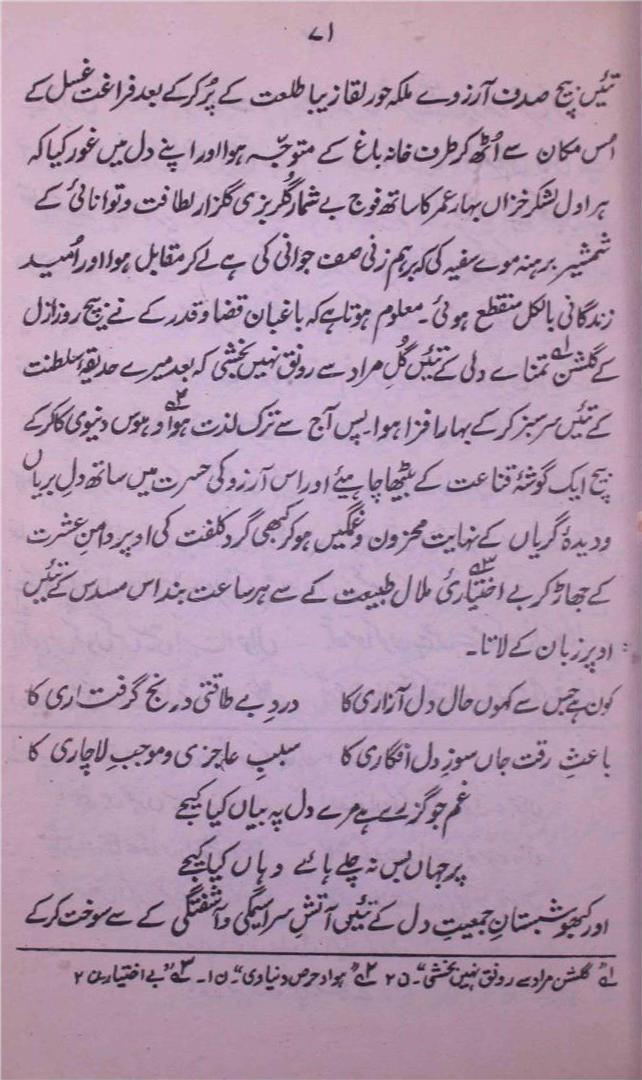 ۷۱
تئیں بیچ صدف آرزوے ملکہ حور لقا زیبا طلعت کے پُر کر کے بعد فراغت غسل کے
اُس مکان سے اُٹھ کر طرف خانہ باغ کے متوجّہ ہوا اور اپنے دل میں غور کیا کہ
ہراول لشکر خزاں بہار عمر کا ساتھ فوج بے شمار گلریزی گلزار لطافت و توانائی کے
شمشیر برہنہ موے سفید کی کہ برہم زنی صف جوانی کی ہے لے کر مقابل ہوا اور اُمید
زندگانی بالکل منقطع ہوئی۔ معلوم ہوتا ہے کہ باغبان قضا و قدر کے نے بیچ روز ازل
کے گلشن ۱؎ تمناے دلی کے تئیں گُلِ مراد سے رونق نہیں بخشی کہ بعد میرے حدیقۂ سلطنت
کے تئیں سرسبز کر کے بہار افزا ہوا۔ پس آج سے ترک لذت ہوا ۲؎ و ہوس دنیوی کا کر کے
بیچ ایک گوشۂ قناعت کے بیٹھا چاہیئے اور اس آرزو کی حسرت میں ساتھ دلِ بریاں
و دیدۂ گریاں کے نہایت محزون و غمگیں ہو کر کبھی گرد کلفت کی اوپر دامنِ عشرت
کے جھاڑ کر بے اختیاریٔ ۳؎ ملال طبیعت کے سے ہر ساعت بند اس مسدس کے تئیں
اوپر زبان کے لاتا۔
کون ہے جس سے کہوں حال دل آزاری کا دردِ بے طاقتی و رنج گرفتاری کا
باعثِ رقت جاں سوزِ دل افگاری کا سببِ عاجزی و موجبِ لاچاری کا
غم جو گزرے ہے مرے دل پہ بیاں کیا کیجے
پر جہاں بس نہ چلے ہائے وہاں کیا کیجے
اور کبھو شبستانِ جمعیتِ دل کے تئیں آتشِ سراسیمگی و آشفتگی کے سے سوخت کر کے
۱؎ "گلشن مراد سے رونق نہیں بخشی"۔ ن ۲ ۲؎ "ہوا و حرص دنیاوی"۔ ن ۱۔ ۳؎ "بے اختیار" ن ۲